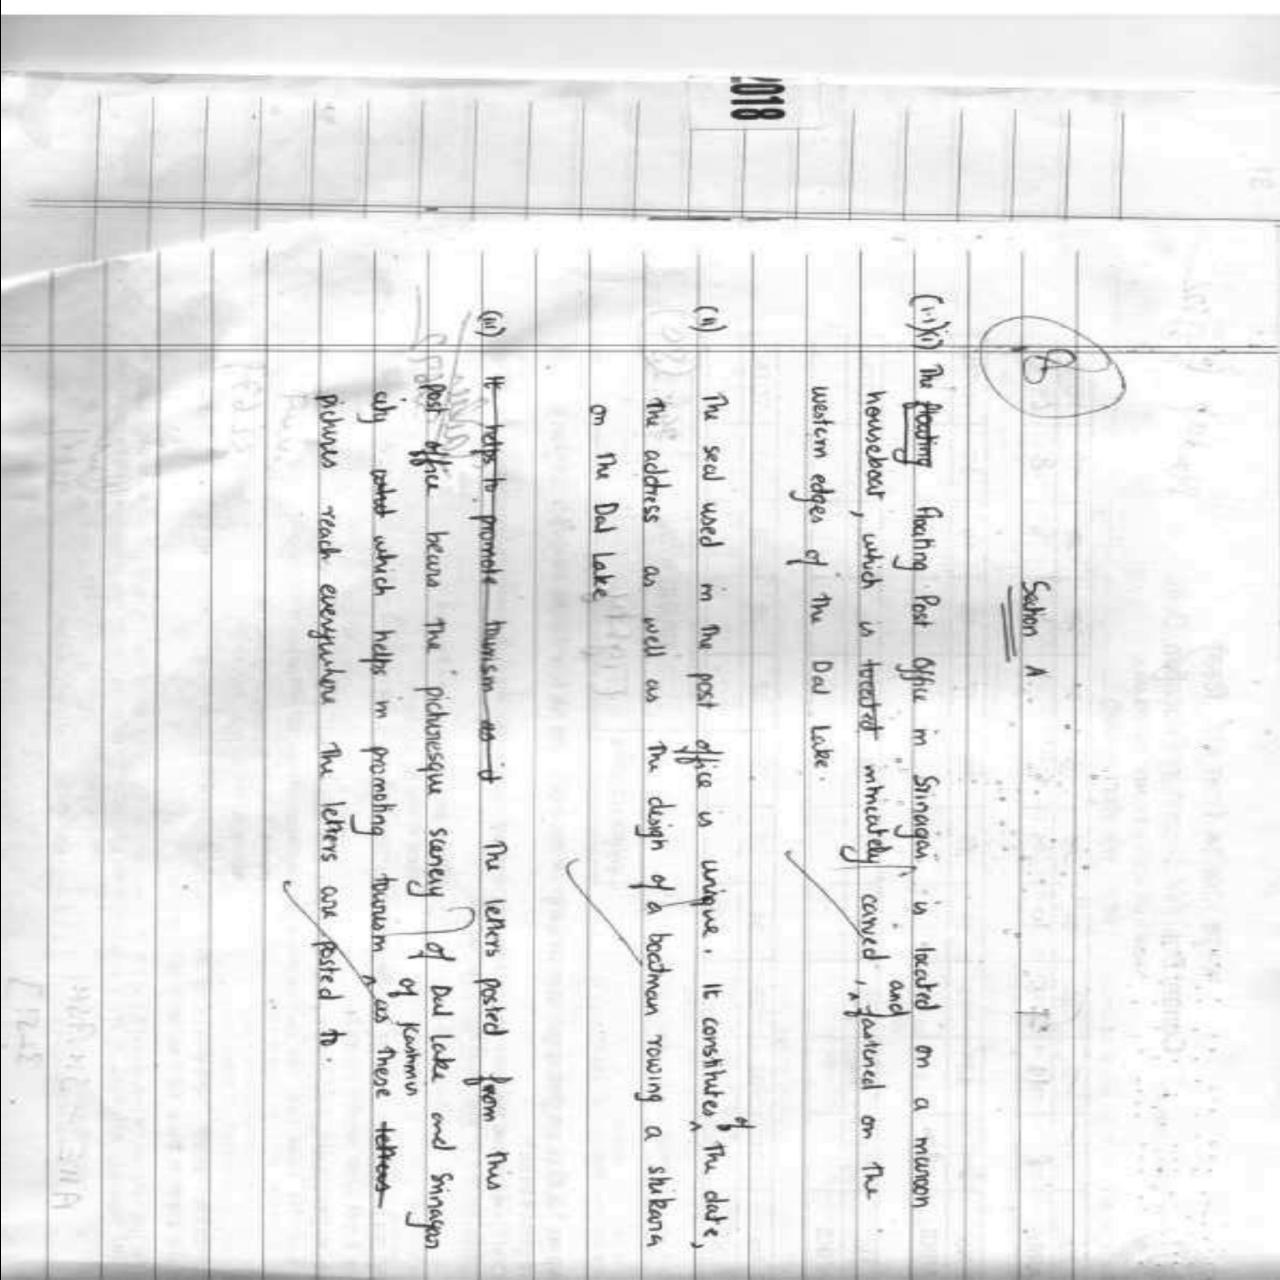 2018
18
Section A
(iii)(i) The floating floating Post Office in Srinagar, is located on a maroon
houseboat, which is treated intricately carved, and fastened on the
western edges of the Dal Lake.
(ii) The seal used in the post office is unique. It constitutes of the date,
the address as well as the design of a boatman rowing a shikara
on the Dal Lake
(iii) It helps to promote tourism as it The letters posted from this
post office bears the picturesque scenery of Dal Lake and Srinagar
why which helps in promoting tourism of Kashmir as these letters
pictures reach everywhere the letters are posted to.